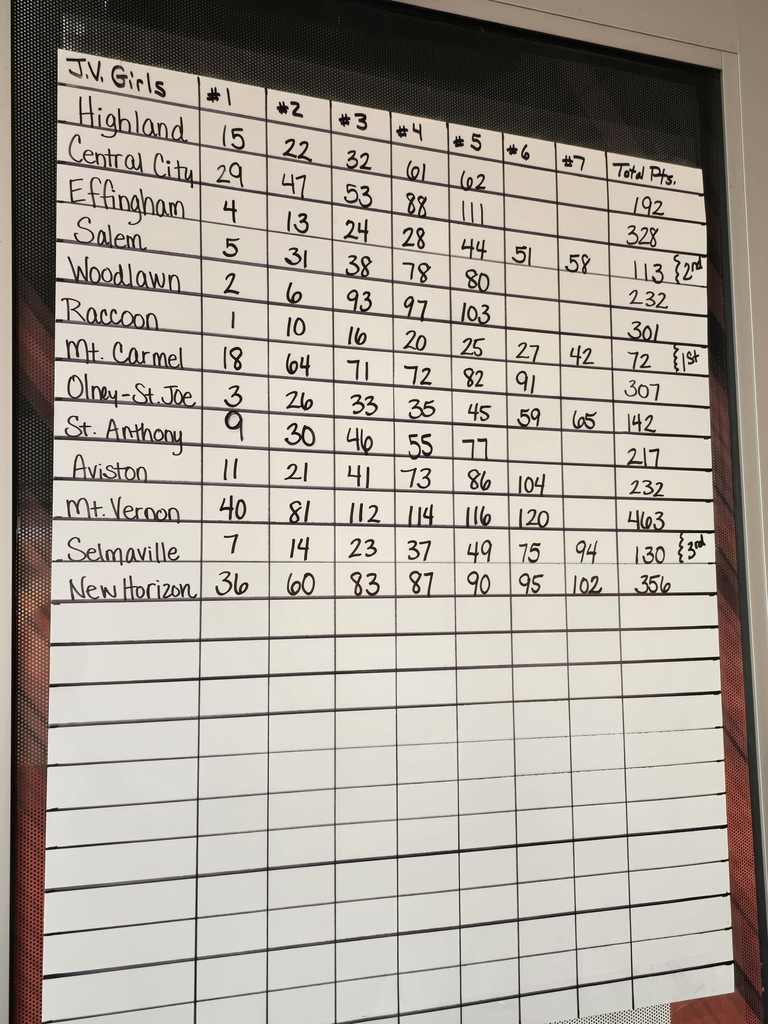 J.V. Girls #1 #2 #3 #4 #5 #6 #7 Total Pts.
Highland 15 22 32 61 62 192
Central City 29 47 53 88 111 328
Effingham 4 13 24 28 44 51 58 113 {2nd
Salem 5 31 38 78 80 232
Woodlawn 2 6 93 97 103 301
Raccoon 1 10 16 20 25 27 42 72 {1st
Mt. Carmel 18 64 71 72 82 91 307
Olney-St. Joe 3 26 33 35 45 59 65 142
St. Anthony 9 30 46 55 77 217
Aviston 11 21 41 73 86 104 232
Mt. Vernon 40 81 112 114 116 120 463
Selmaville 7 14 23 37 49 75 94 130 {3rd
New Horizon 36 60 83 87 90 95 102 356